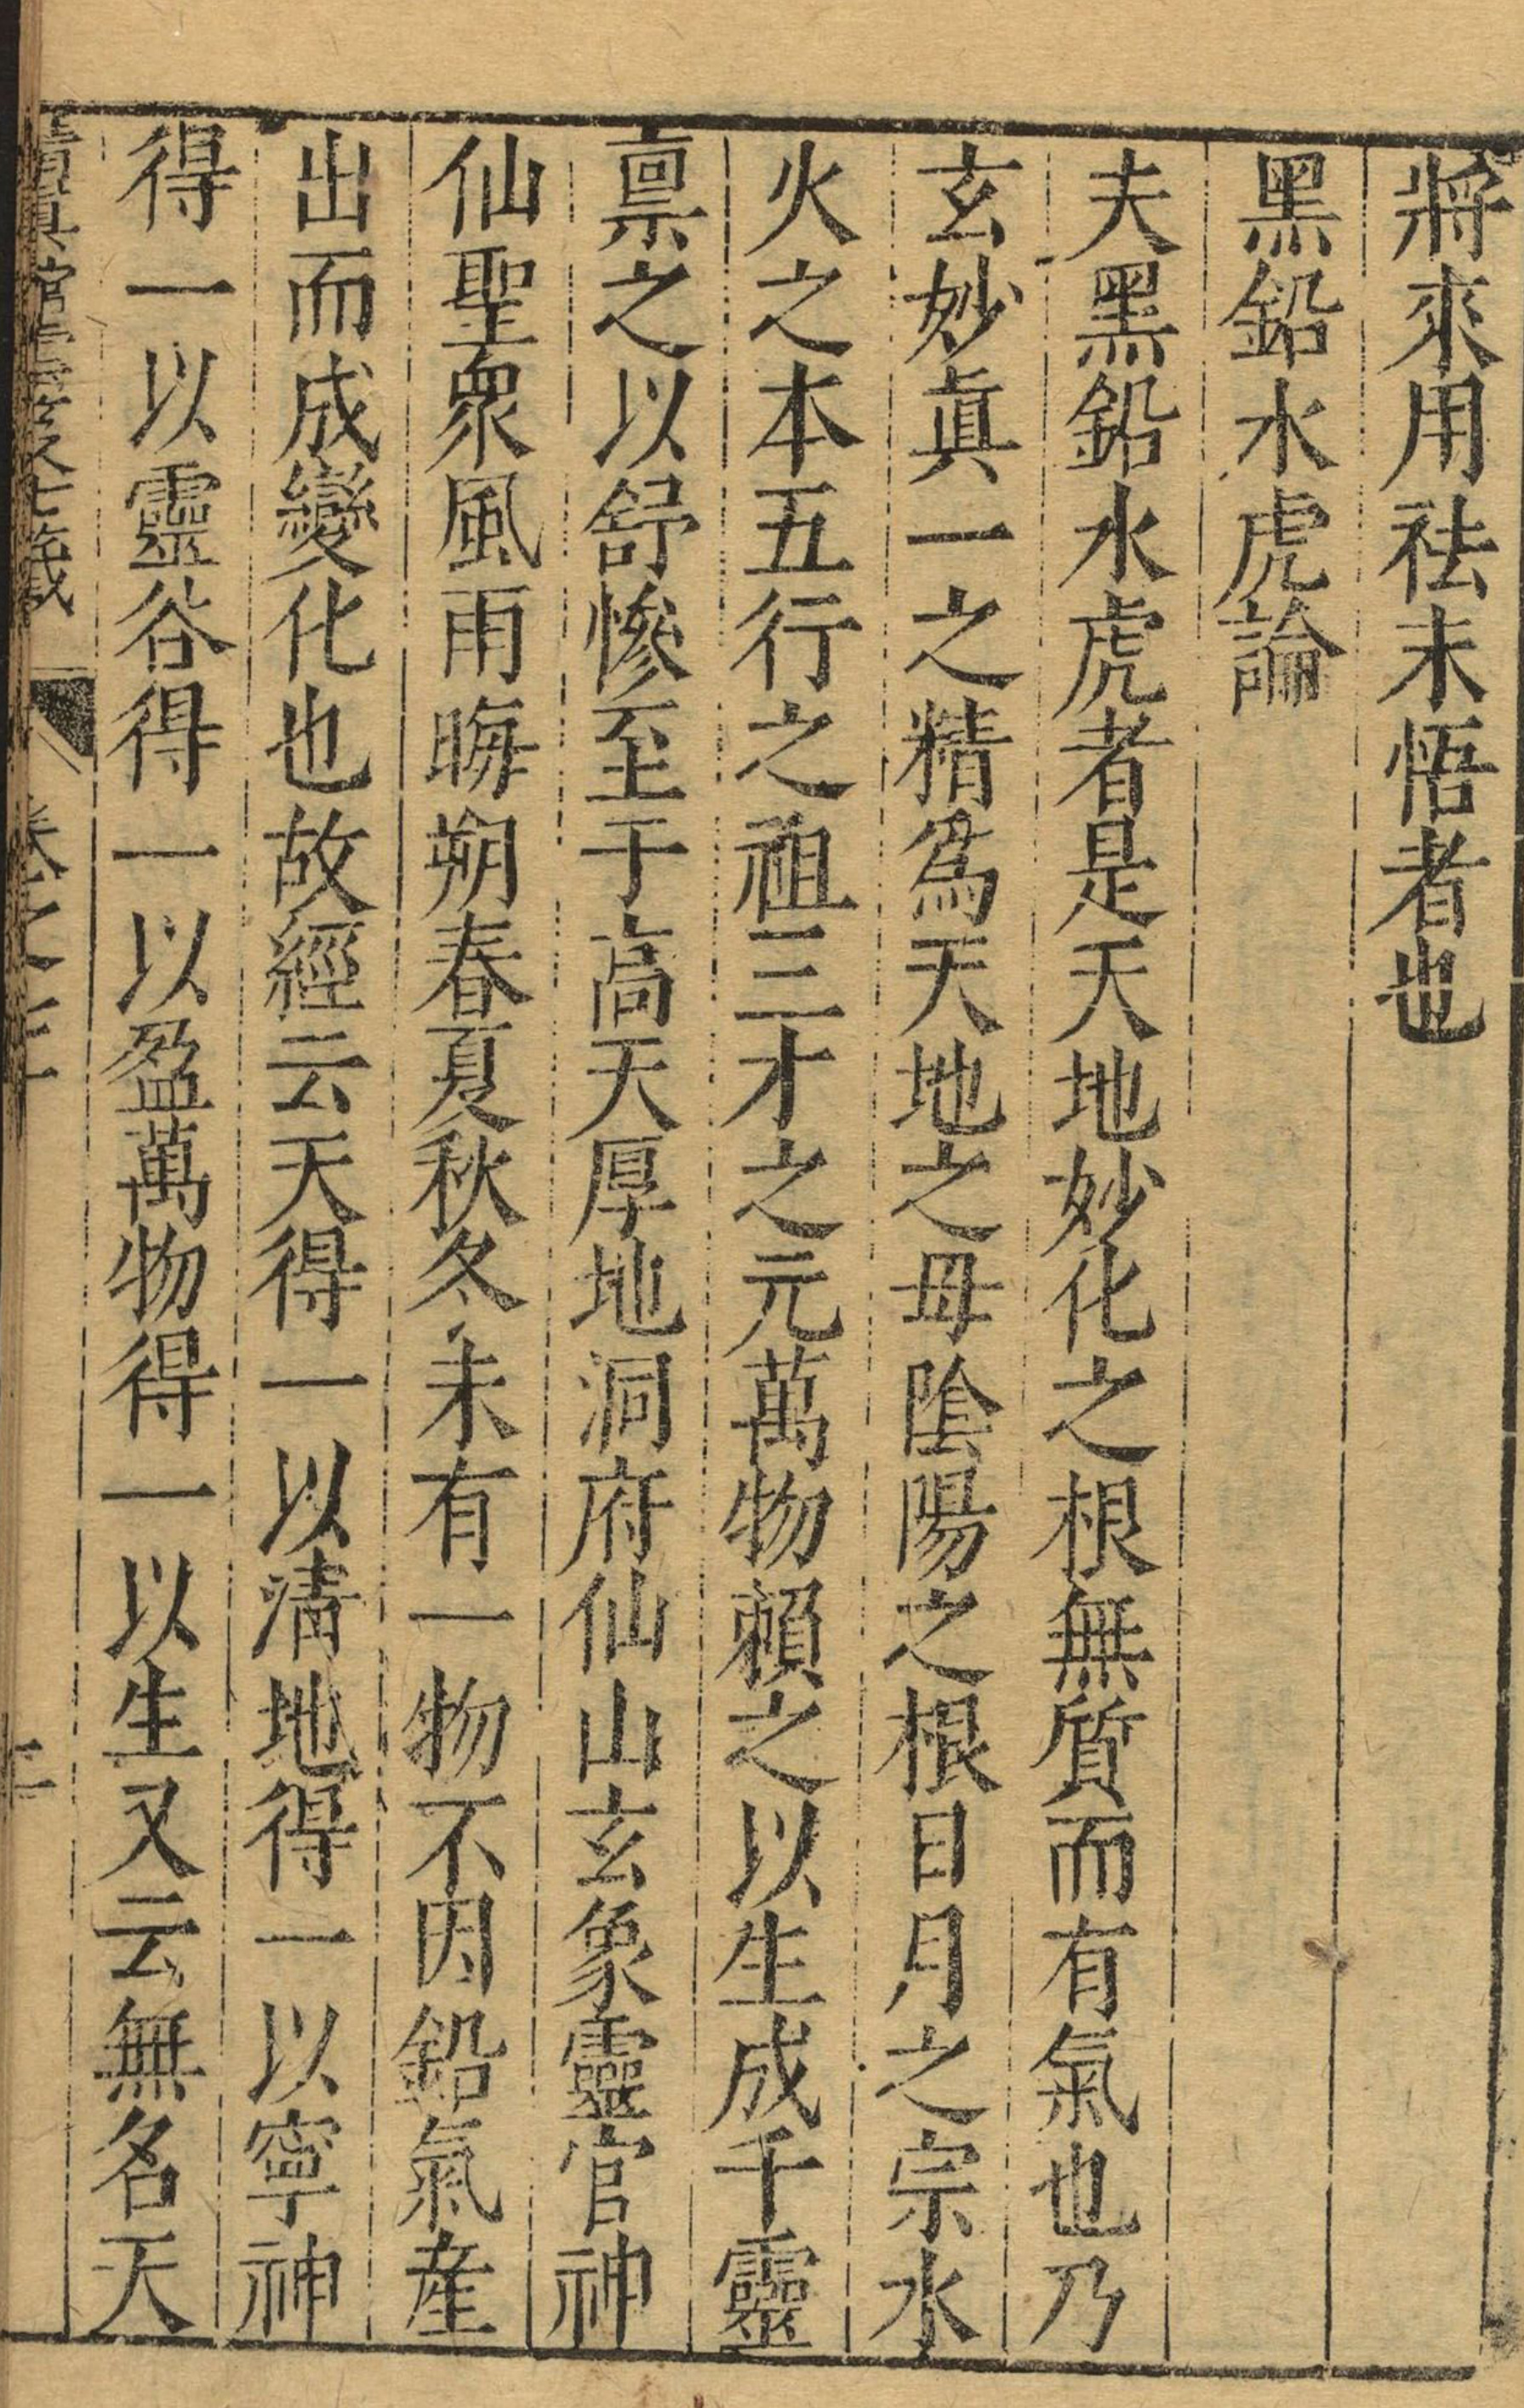 將來用祛未悟者也
黑鉛水虎論
夫黑鉛水虎者是天地妙化之根無質而有氣也乃
玄妙眞一之精爲天地之母陰陽之根日月之宗水
火之本五行之祖三才之元萬物賴之以生成千靈
禀之以舒慘至于高天厚地洞府仙山玄象靈官神
仙聖衆風雨晦朔春夏秋冬未有一物不因鉛氣産
出而成變化也故經云天得一以清地得一以寧神
得一以靈谷得一以盈萬物得一以生又云無名天